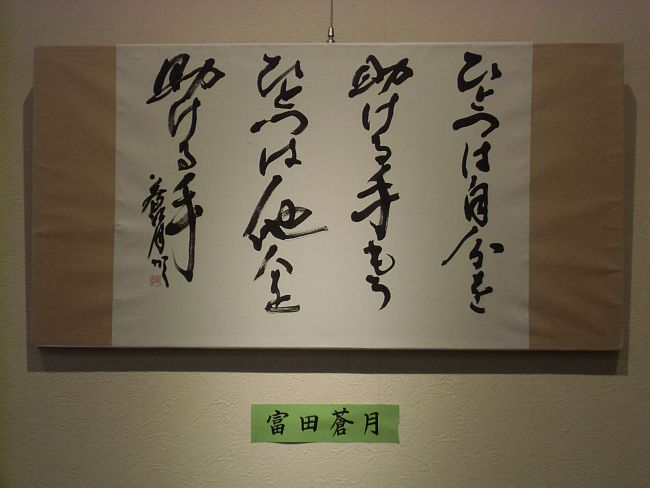 ひとつは自分を
助ける手もう
ひとつは他人を
助ける手
蒼月書
富田蒼月